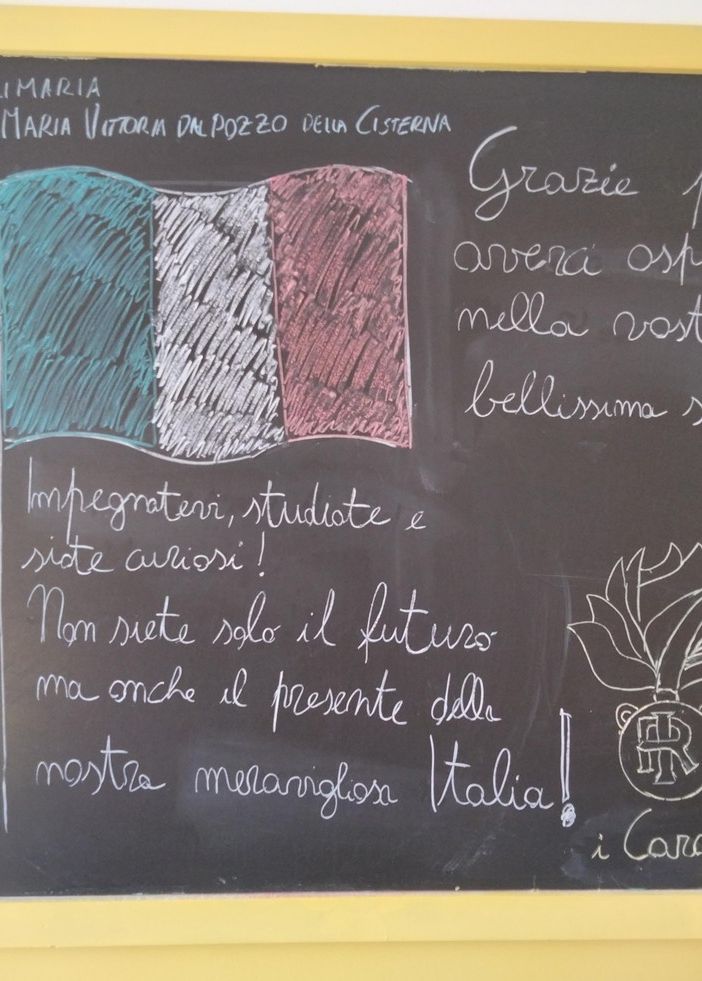 IMARIA
MARIA VITTORIA DAL POZZO DELLA CISTERNA
Grazie p
averci osp
nella vost
bellissima s
Impegnatevi, studiate e
siate curiosi!
Non siete solo il futuro
ma anche il presente della
nostra meravigliosa Italia!
RI
i Cara